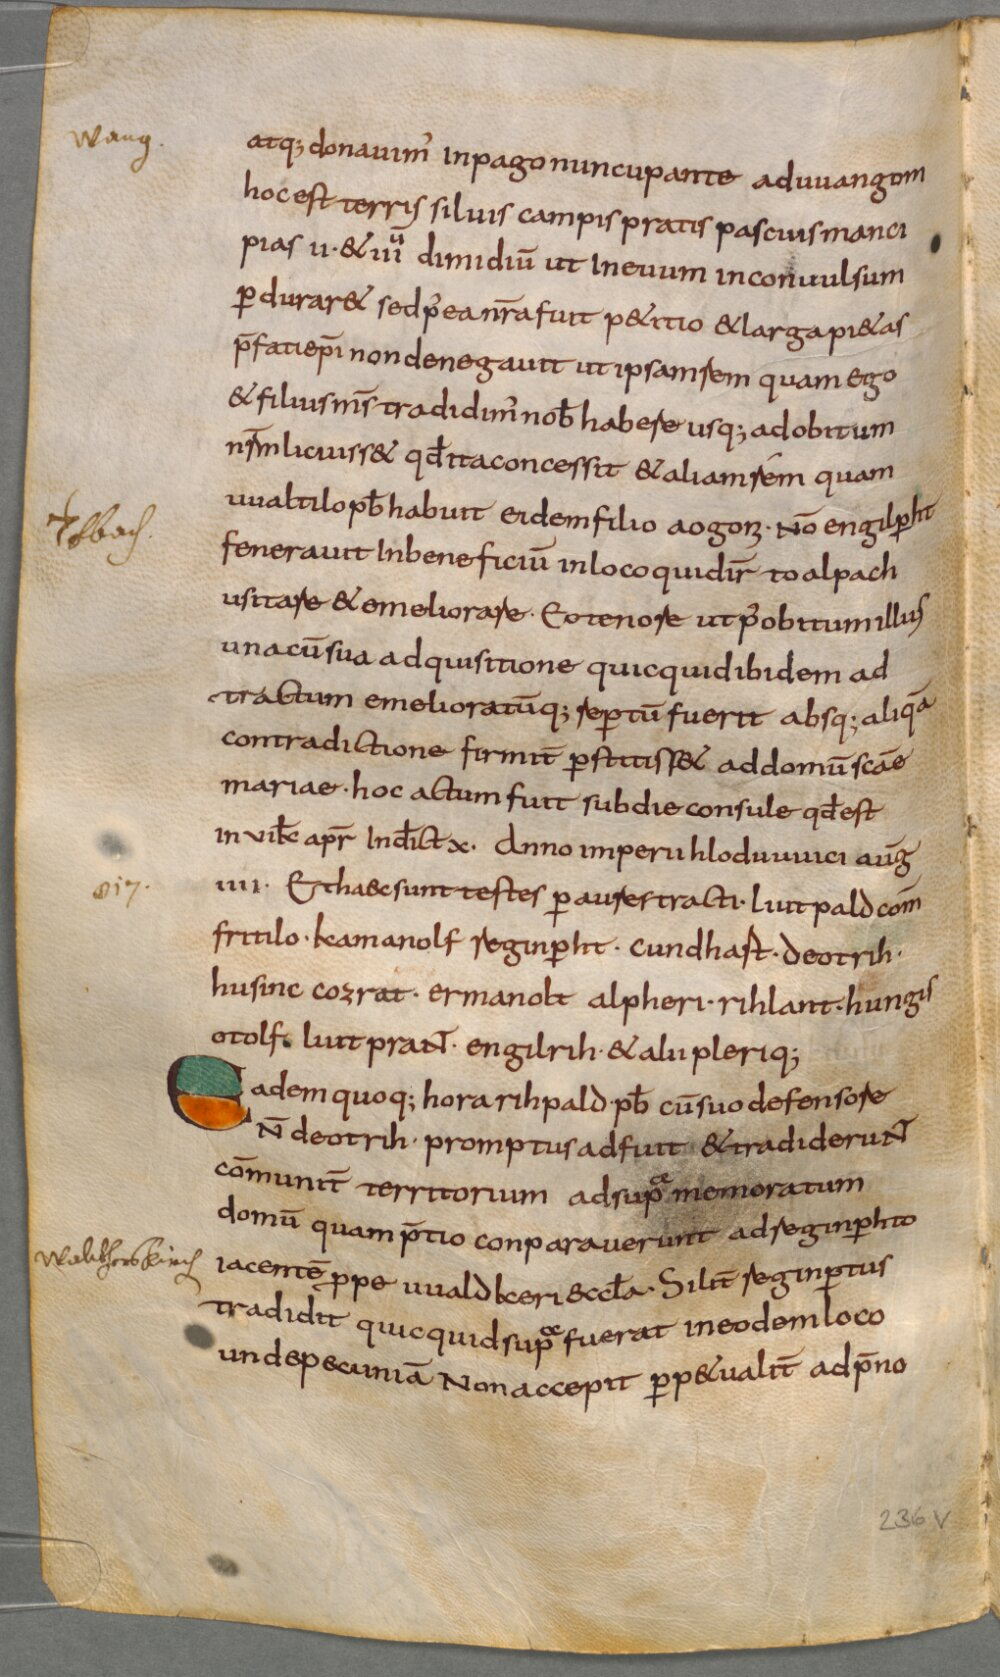 Wang.
atq; donauim᾽ In pago nuncupante aduuangum
hoc est terris siluis campis pratis pascuis manci
pias II · & IIII dimidiū ut In euum inconuulsum
p̱durar& sed p᾽ ea nr̄a fuit p&itio & larga pi&as
p̄fati ep̄i non denegauit ut ipsam rem quam ego
& filius ms̄ tradidim᾽ nob̄ habere usq; ad obitum
nr̄m licuiss& qd̄ ita concessit & aliam rem quam
uualtilo pb̄ habuit eidem filio
fenerauit In beneficiū in loco qui dir̄ to alpach
usitare & emeliorare · Eo tenore ut p᾽ obitum illius
una cū sua adquisitione quicquid ibidem ad
tractum emelioratūq; rep̱tū fuerit absq; aliqā
contradictione firmit̄ p̱stitiss& ad domū scāe
mariae · hoc actum fuit sub die consule qd̄ est
apr̄ Ind̄ict x · Anno imperii hloduuuici auḡ
IIII · Et haec sunt testes p̱ aures tracti · liutpald com̄
fritilo · kamanolf reginp̱ht · cundhart · deotrih ·
husinc cozrat · ermanolt alpheri · rihlant · hungis
otolf · liutprant · engilrih · & alii pleriq;
817.
Eadem quoq; hora rihpald · pb̄ cū suo defensore
N̄ deotrih · promptus adfuit & tradiderunt
cōmunit̄ territorium ad supᵃ memoratum
domū quam p̄tio conparauerunt ad reginp̱hto
Waltherskirch
iacentē p̱pe uualdkeri eccl̄a · Silit̄ reginp̱tus
tradidit quicquid supᵃ fuerat in eodem loco
unde pecuniā Non accepit p̱p&ualit̄ ad p̄no
236 V